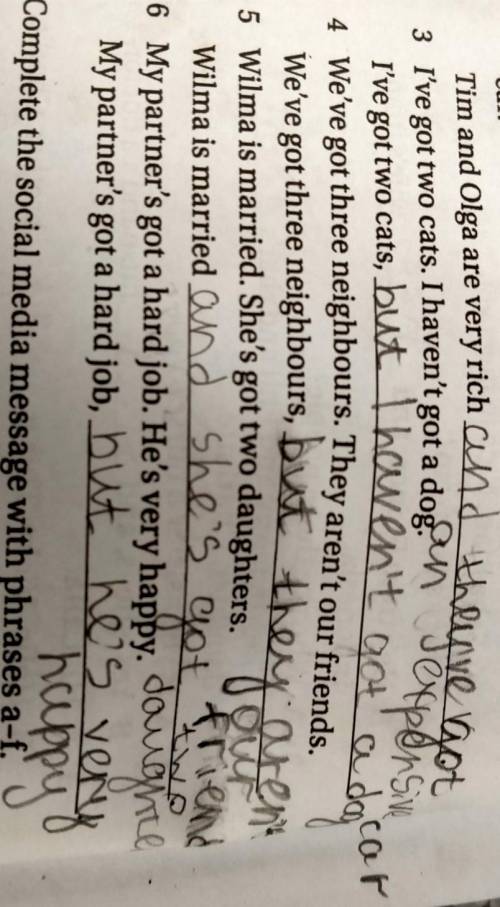 Tim and Olga are very rich and they've got
an expensive car
3 I've got two cats. I haven't got a dog.
I've got two cats, but I haven't got a dog
4 We've got three neighbours. They aren't our friends.
We've got three neighbours, but they aren't
our friend
5 Wilma is married. She's got two daughters.
Wilma is married and she's got two
daughte
6 My partner's got a hard job. He's very happy.
My partner's got a hard job, but he's very
happy
Complete the social media message with phrases a–f.